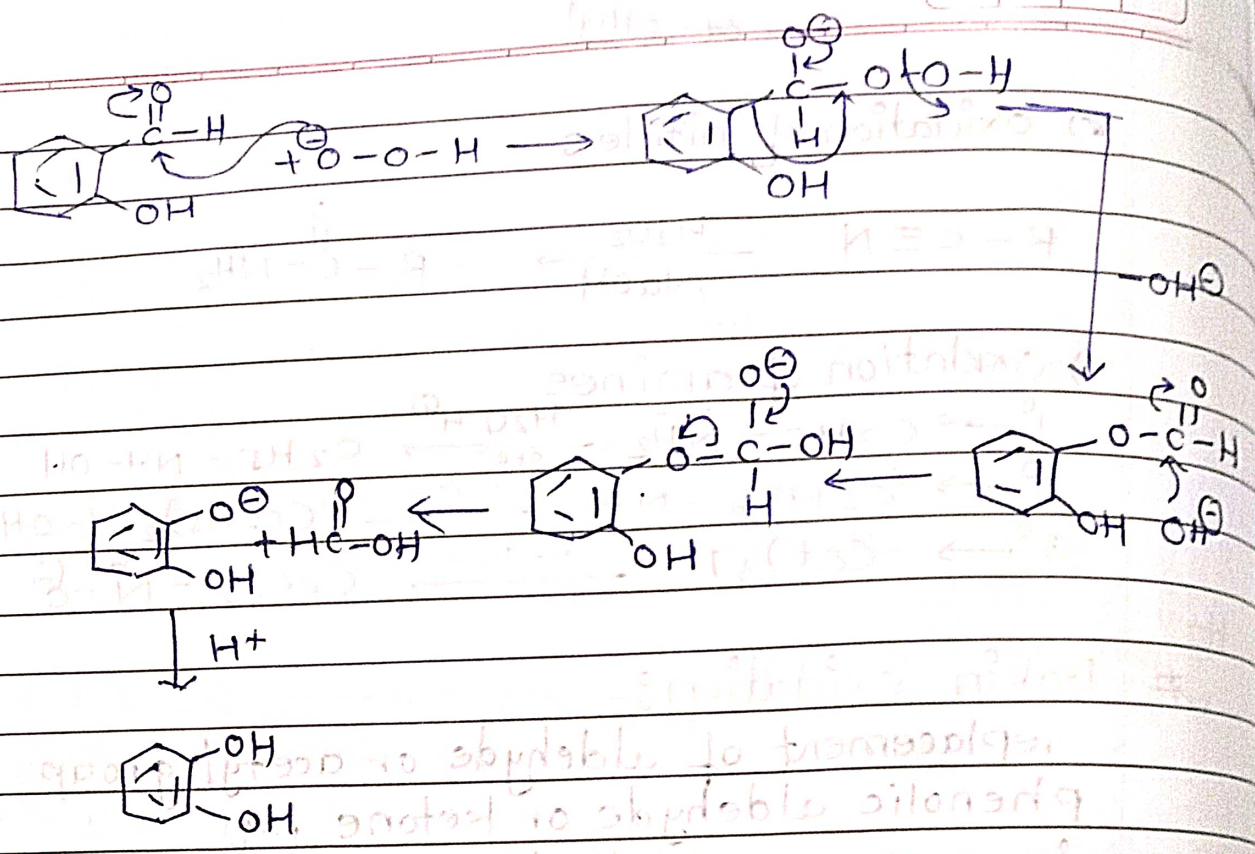 O
C-H + ⊖O-O-H →
OH
O⊖
C-O-O-H
H
OH
-OH⊖
O
O-C-H
OH OH⊖
←
O⊖
O-C-OH
H
OH
←
O⊖
OH
+ HC-OH
O
H+
OH
OH